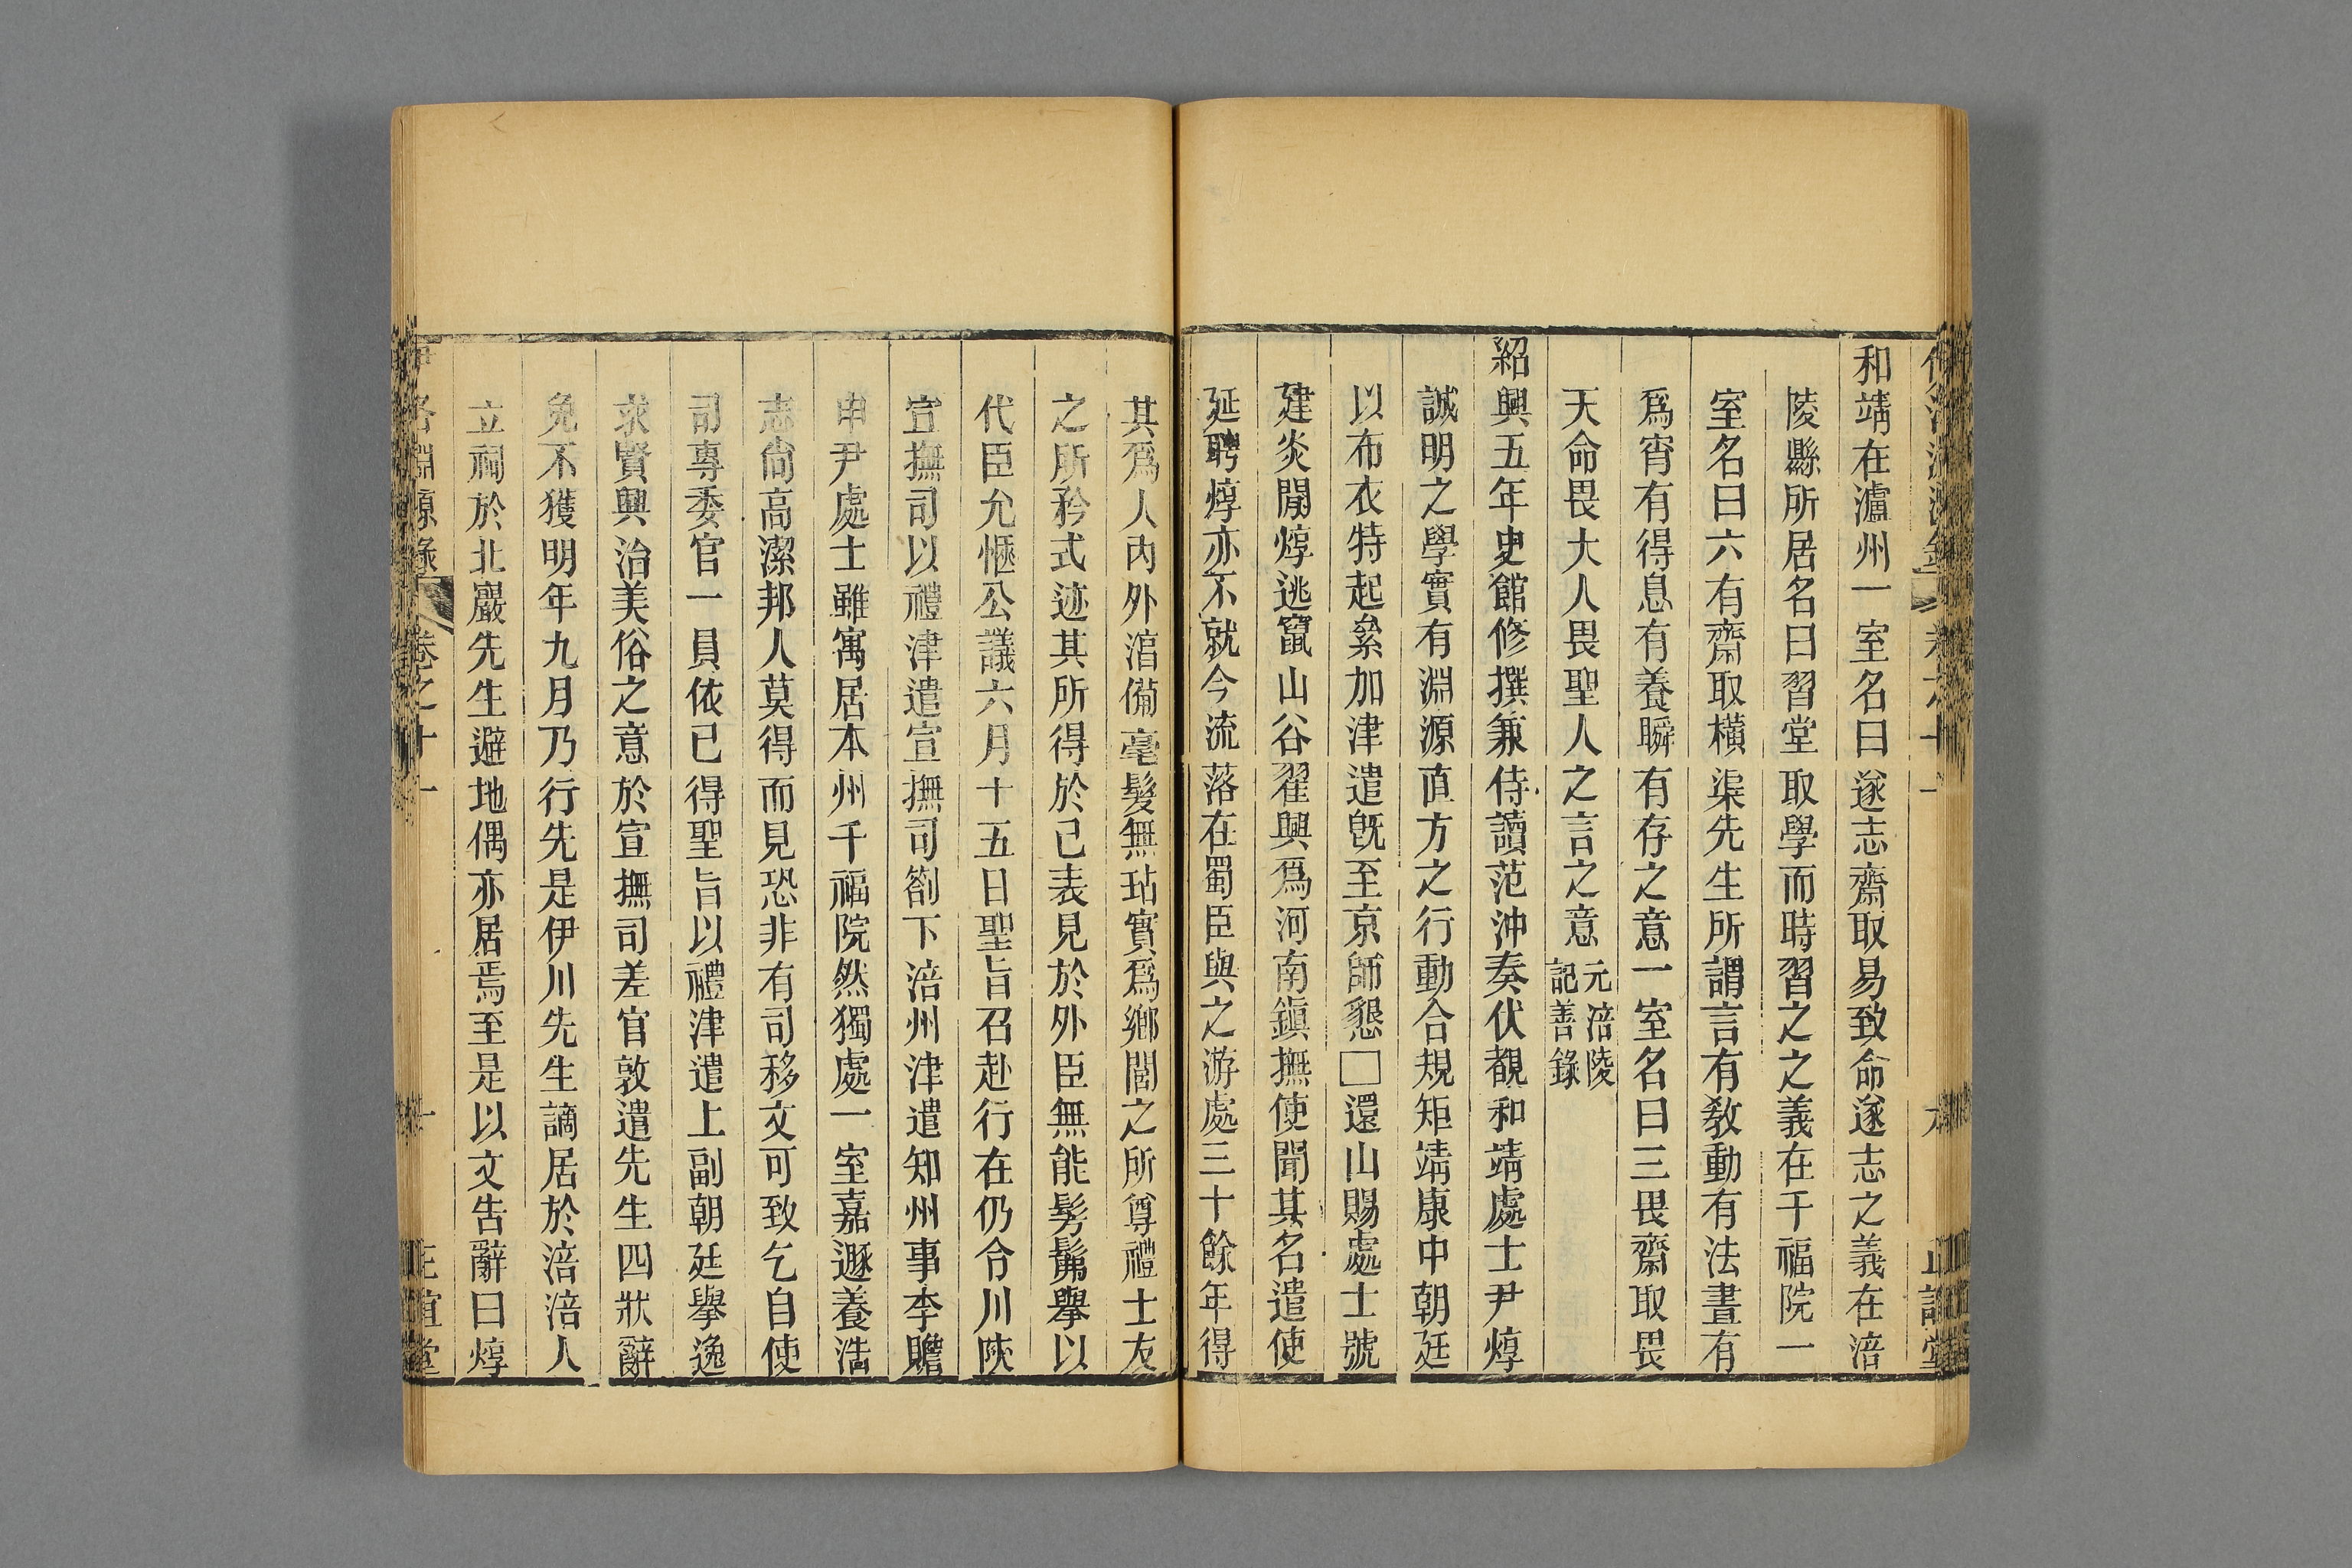 和靖在瀘州一室名曰遂志齋取易致命遂志之義在涪
陵縣所居名曰習堂取學而時習之之義在千福院一
室名曰六有齋取橫渠先生所謂言有教動有法晝有
爲宵有得息有養瞬有存之意一室名曰三畏齋取畏
天命畏大人畏聖人之言之意
元涪陵
記善錄
紹興五年史館修撰兼侍讀范沖奏伏覩和靖處士尹焞
誠明之學實有淵源直方之行動合規矩靖康中朝廷
以布衣特起累加津遣旣至京師懇□還山賜處士號
建炎閒焞逃竄山谷翟興爲河南鎭撫使聞其名遣使
延聘焞亦不就今流落在蜀臣與之游處三十餘年得
其爲人內外涫備毫髮無玷實爲鄉閭之所尊禮士友
之所矜式迹其所得於已表見於外臣無能髣髴舉以
代臣允愜公議六月十五日聖旨召赴行在仍令川陝
宣撫司以禮津遣宣撫司劄下涪州津遣知州事李贍
申尹處士雖寓居本州千福院然獨處一室嘉遯養浩
志尙高潔邦人莫得而見恐非有司移文可致乞自使
司專委官一員依已得聖旨以禮津遣上副朝廷舉逸
求賢興治美俗之意於宣撫司差官敦遣先生四狀辭
免不獲明年九月乃行先是伊川先生謫居於涪涪人
立祠於北巖先生避地偶亦居焉至是以文告辭曰焞
洛淵源錄 卷之十一